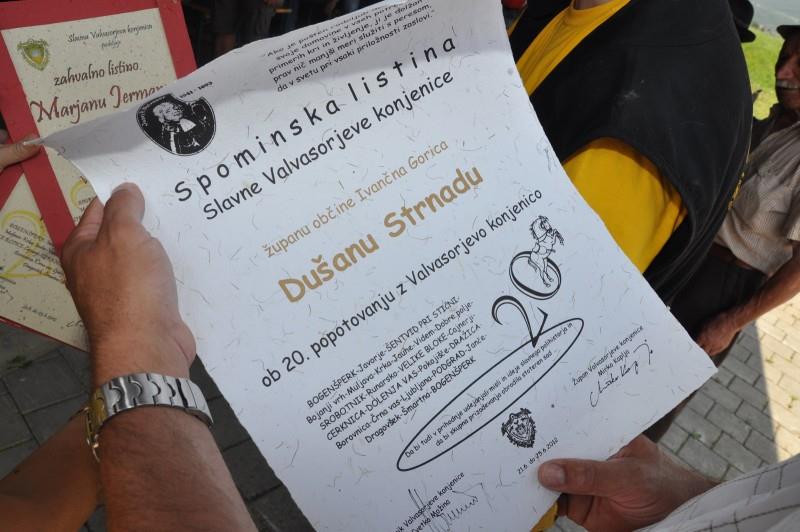 Slavna Valvasorjeva konjenica
podeljuje
zahvalno listino
Marjanu Jerman
svoje domovine v vseh
primerih krvi in življenje, ji je dolžan
prav nič manjši meri služiti s peresom,
da v svetu pri vsaki priložnosti zaslovi.
Spominska listina
Slavne Valvasorjeve konjenice
županu občine Ivančna Gorica
Dušanu Strnadu
ob 20. popotovanju z Valvasorjevo konjenico
20
BOGENŠPERK-Javorje-ŠENTVID PRI STIČNI-
Bojanji vrh-Muljava-Krka-Zagradec-Videm-Dobre polje-
SROBOTNIK-Runarsko-VELIKE BLOKE-Cajnarji-
CERKNICA-DOLENJA VAS-Pokojišče-DRAŽICA-
Borovnica-Črna vas-Ljubljana-PODGRAD-Janče-
Dragovšek-Šmartno-BOGENŠPERK
Da bi tudi v prihodnje udejanjali misli in ideje slavnega polihistorja in
da bi skupna prizadevanja obrodila stoteren sad
21.6. do 25.6.2012
Župan Valvasorjeve konjenice
Mirko Kaplja
Valvasorjeve konjenice